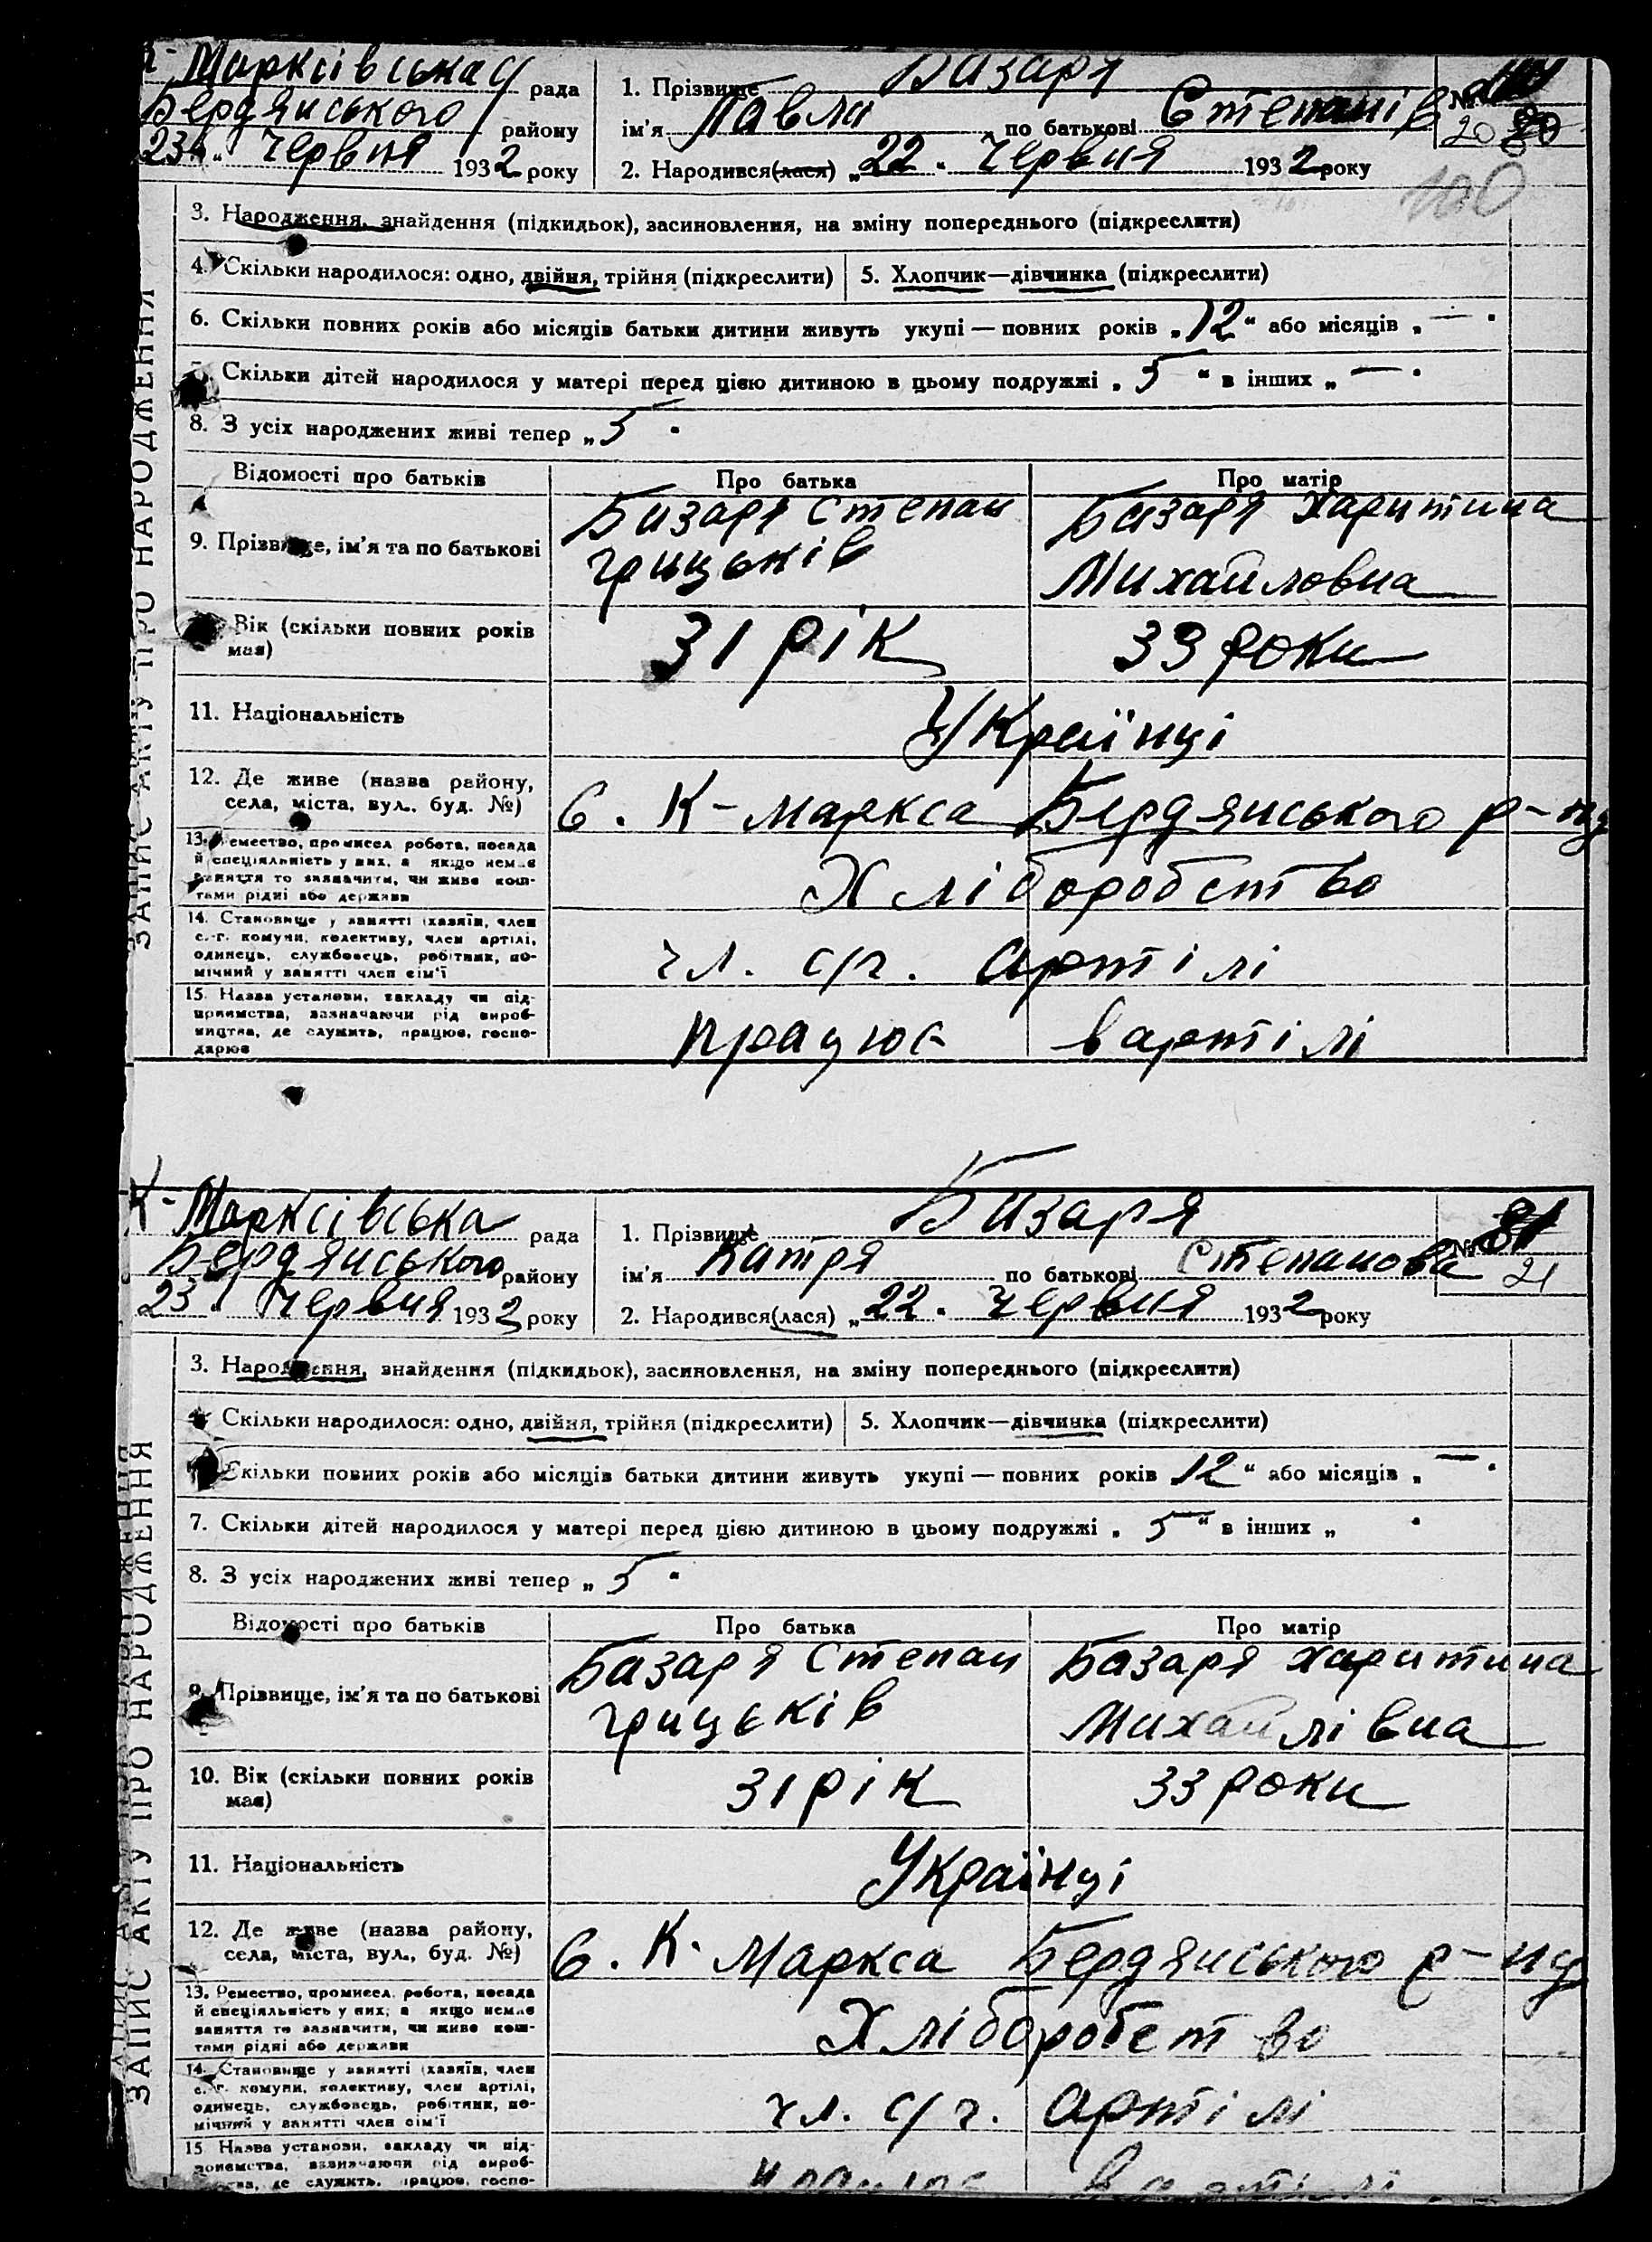 К-Марксівська с/ рада
Бердянського району
23 червня 1932 року
1. Прізвище Базаря
ім'я Павло по батькові Степанів
№ 20
2. Народився(лася) „22" червня 1932 року
100
3. Народження, знайдення (підкидьок), засиновлення, на зміну попереднього (підкреслити)
4. Скільки народилося: одно, двійня, трійня (підкреслити) 5. Хлопчик—дівчинка (підкреслити)
6. Скільки повних років або місяців батьки дитини живуть укупі — повних років „12" або місяців „—"
7. Скільки дітей народилося у матері перед цією дитиною в цьому подружжі „5" в інших „—"
8. З усіх народжених живі тепер „5"
Відомості про батьків Про батька Про матір
9. Прізвище, ім'я та по батькові
Базаря Степан
Грицьків
Базаря Харитина
Михайловна
10. Вік (скільки повних років має) 31 рік 33 роки
11. Національність Українці
12. Де живе (назва району,
села, міста, вул., буд. №) С. К-Маркса Бердянського р-ну
13. Ремество, промисел, робота, посада
й спеціяльність у них, а якщо немає
заняття то зазначити, чи живе кош-
тами рідні або держави
Хліборобство
14. Становище у занятті (хазяїн, член
с.-г. комуни, колективу, член артілі,
одинець, службовець, робітник, по-
мічний у занятті член сім'ї
чл. с/г. артілі
15. Назва установи, закладу чи під-
приємства, зазначаючи рід вироб-
ництва, де служить, працює, госпо-
дарює
працює в артілі
ЗАПИС АКТУ ПРО НАРОДЖЕННЯ
К-Марксівська рада
Бердянського району
23 червня 1932 року
1. Прізвище Базаря
ім'я Катря по батькові Степанова
№ 81
21
2. Народився(лася) „22" червня 1932 року
3. Народження, знайдення (підкидьок), засиновлення, на зміну попереднього (підкреслити)
4. Скільки народилося: одно, двійня, трійня (підкреслити) 5. Хлопчик—дівчинка (підкреслити)
6. Скільки повних років або місяців батьки дитини живуть укупі — повних років 12" або місяців „—"
7. Скільки дітей народилося у матері перед цією дитиною в цьому подружжі „5" в інших „ "
8. З усіх народжених живі тепер „5"
Відомості про батьків Про батька Про матір
9. Прізвище, ім'я та по батькові
Базаря Степан
Грицьків
Базаря Харитина
Михайлівна
10. Вік (скільки повних років має) 31 рік 33 роки
11. Національність Українці
12. Де живе (назва району,
села, міста, вул., буд. №) С. К. Маркса Бердянського р-ну
13. Ремество, промисел, робота, посада
й спеціяльність у них, а якщо немає
заняття то зазначити, чи живе кош-
тами рідні або держави
Хліборобство
14. Становище у занятті (хазяїн, член
с.-г. комуни, колективу, член артілі,
одинець, службовець, робітник, по-
мічний у занятті член сім'ї
чл. с/г. артілі
15 Назва установи, закладу чи під-
приємства, зазначаючи рід вироб-
ництва, де служить, працює, госпо-
працює в артілі
ЗАПИС АКТУ ПРО НАРОДЖЕННЯ